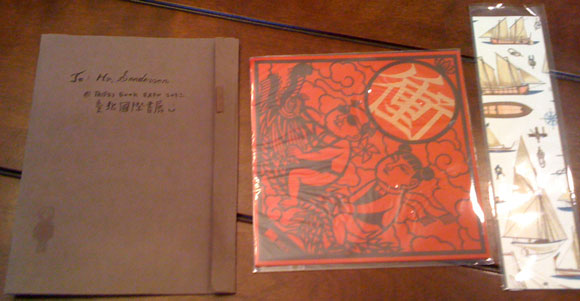 To: Mr. Sanderson
@ TAIPEI BOOK EXPO 2012
臺北國際書展
衝